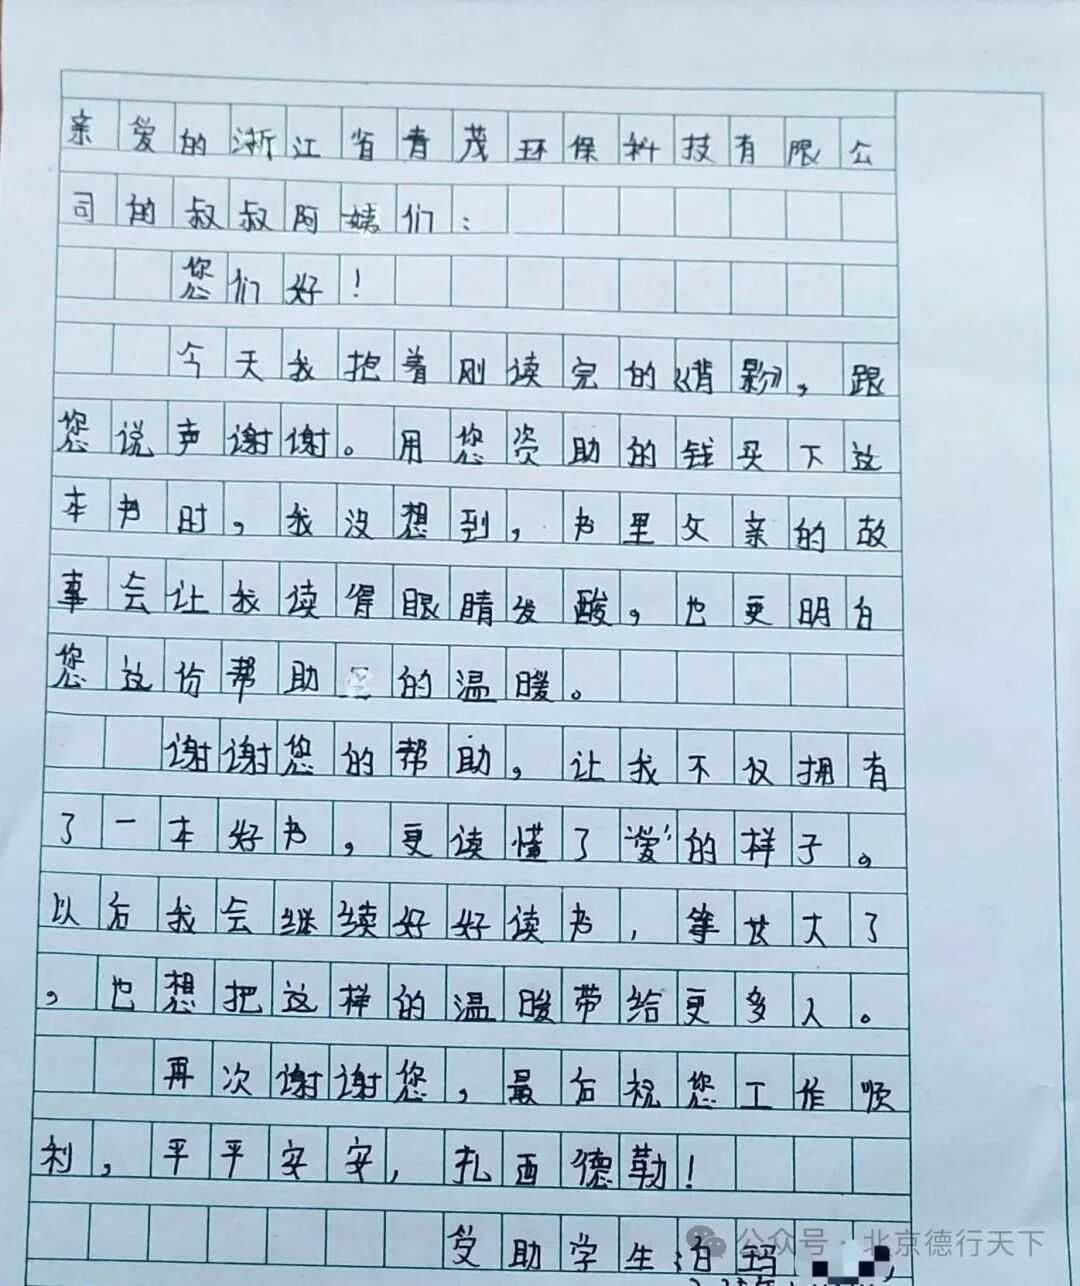 亲爱的浙江省青茂环保科技有限公
司的叔叔阿姨们：
您们好！
今天我抱着刚读完的《背影》，跟
您说声谢谢。用您资助的钱买下这
本书时，我没想到，书里父亲的故
事会让我读得眼睛发酸，也更明白
您这份帮助的温暖。
谢谢您的帮助，让我不仅拥有
了一本好书，更读懂了“爱”的样子。
以后我会继续好好读书，等长大了
，也想把这样的温暖带给更多人。
再次谢谢您，最后祝您工作顺
利，平平安安，扎西德勒！
受助学生泊玛
公众号·北京德行天下